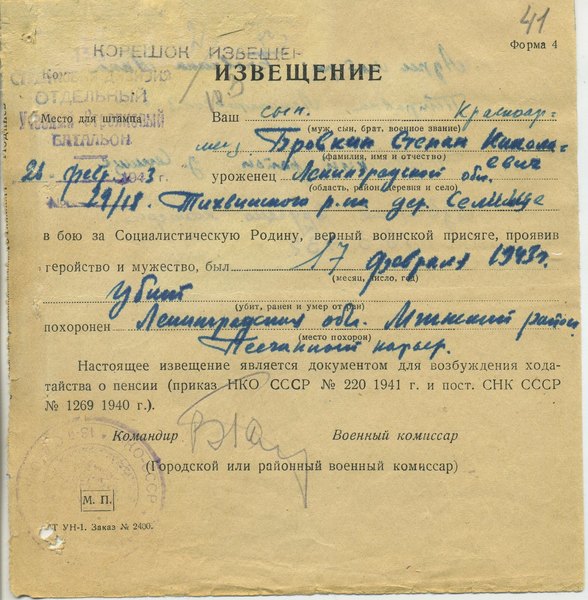 41
Форма 4
КОРЕШОК ИЗВЕЩЕН
ИЗВЕЩЕНИЕ
ОТДЕЛЬНЫЙ
БАТАЛЬОН
Место для штампа
Ваш сын. Красноар-
(муж, сын, брат, военное звание)
меец Бровкин Степан Никола-
(фамилия, имя и отчество)
евич
26 февр 1943 уроженец Ленинградской обл.
(область, район, деревня и село)
№ 29/18. Тихвинского р-на дер. Селище
в бою за Социалистическую Родину, верный воинской присяге, проявив
геройство и мужество, был 17 февраля 1943 г.
(месяц, число, год)
убит
(убит, ранен и умер от ран)
похоронен Ленинградская обл. Мгинский район
(место похорон)
Песчанный карьер.
Настоящее извещение является документом для возбуждения хода-
тайства о пенсии (приказ НКО СССР № 220 1941 г. и пост. СНК СССР
№ 1269 1940 г.).
Командир Военный комиссар
(Городской или районный военный комиссар)
М. П.
УН-1. Заказ № 2400.